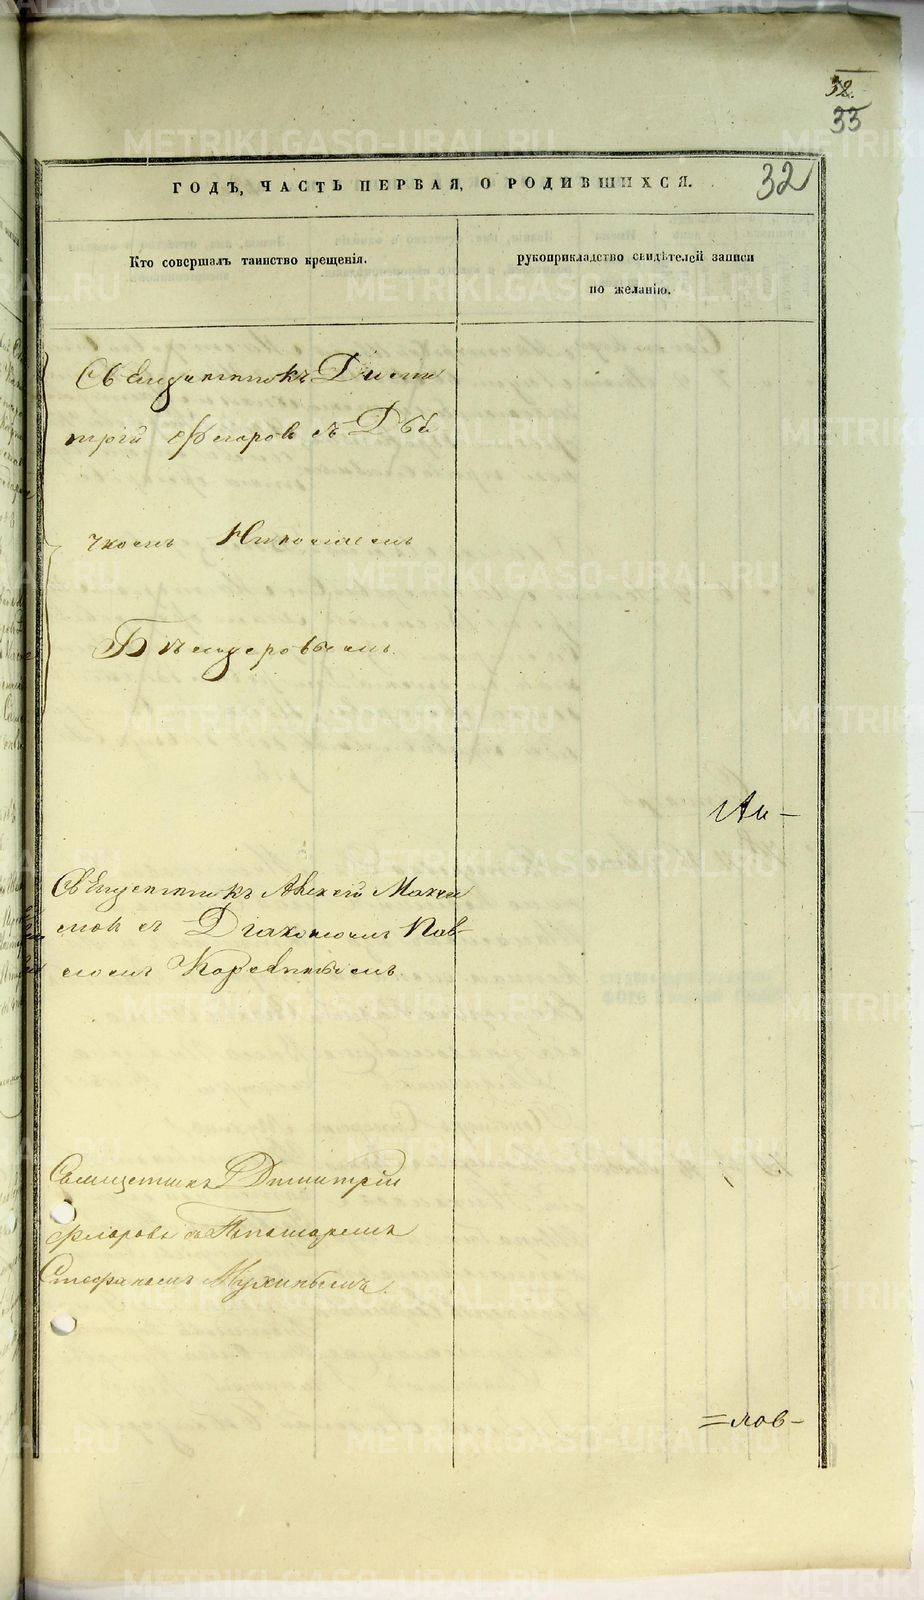 32.
33
32
ГОДЪ, ЧАСТЬ ПЕРВАЯ, О РОДИВШИХСЯ.
Кто совершалъ таинство крещенія.
рукоприкладство свидѣтелей записи
по желанію.
Священникъ Дими
трій Флоровъ съ Дья
чкомъ Николаемъ
Бѣлозеровымъ.
Священникъ Алексей Макси
мовъ съ Діакономъ Пав-
ломъ Коровинымъ
Священникъ Дмитрій
Флоровъ съ Пономаремъ
Стефаномъ Мухинымъ.
=лов-
METRIKI.GASO-URAL.RU